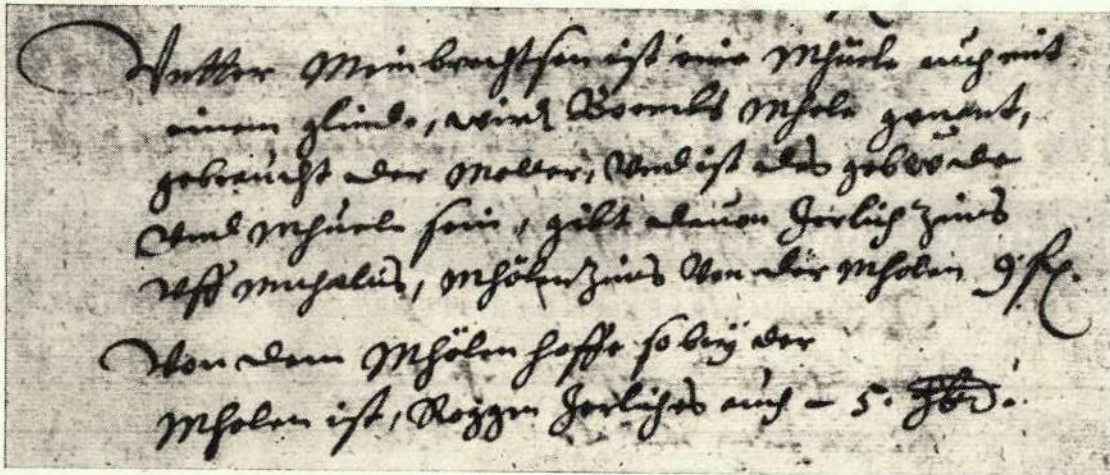 Vntter Meinbrechtsen ist eine Mhüele auch mit
einem glinde, wird Mhole genant,
gebraucht der Meller, Vnd ist das gebewde
Vnd Mhüele sein, gibt dauon Jerlich Zins
Vff Michalis, Mhölen Zins Von der Mholen 9 fl.
Von dem Mhölen hoffe so bey der
Mholen ist, Roggen Jerliches auch – 5.